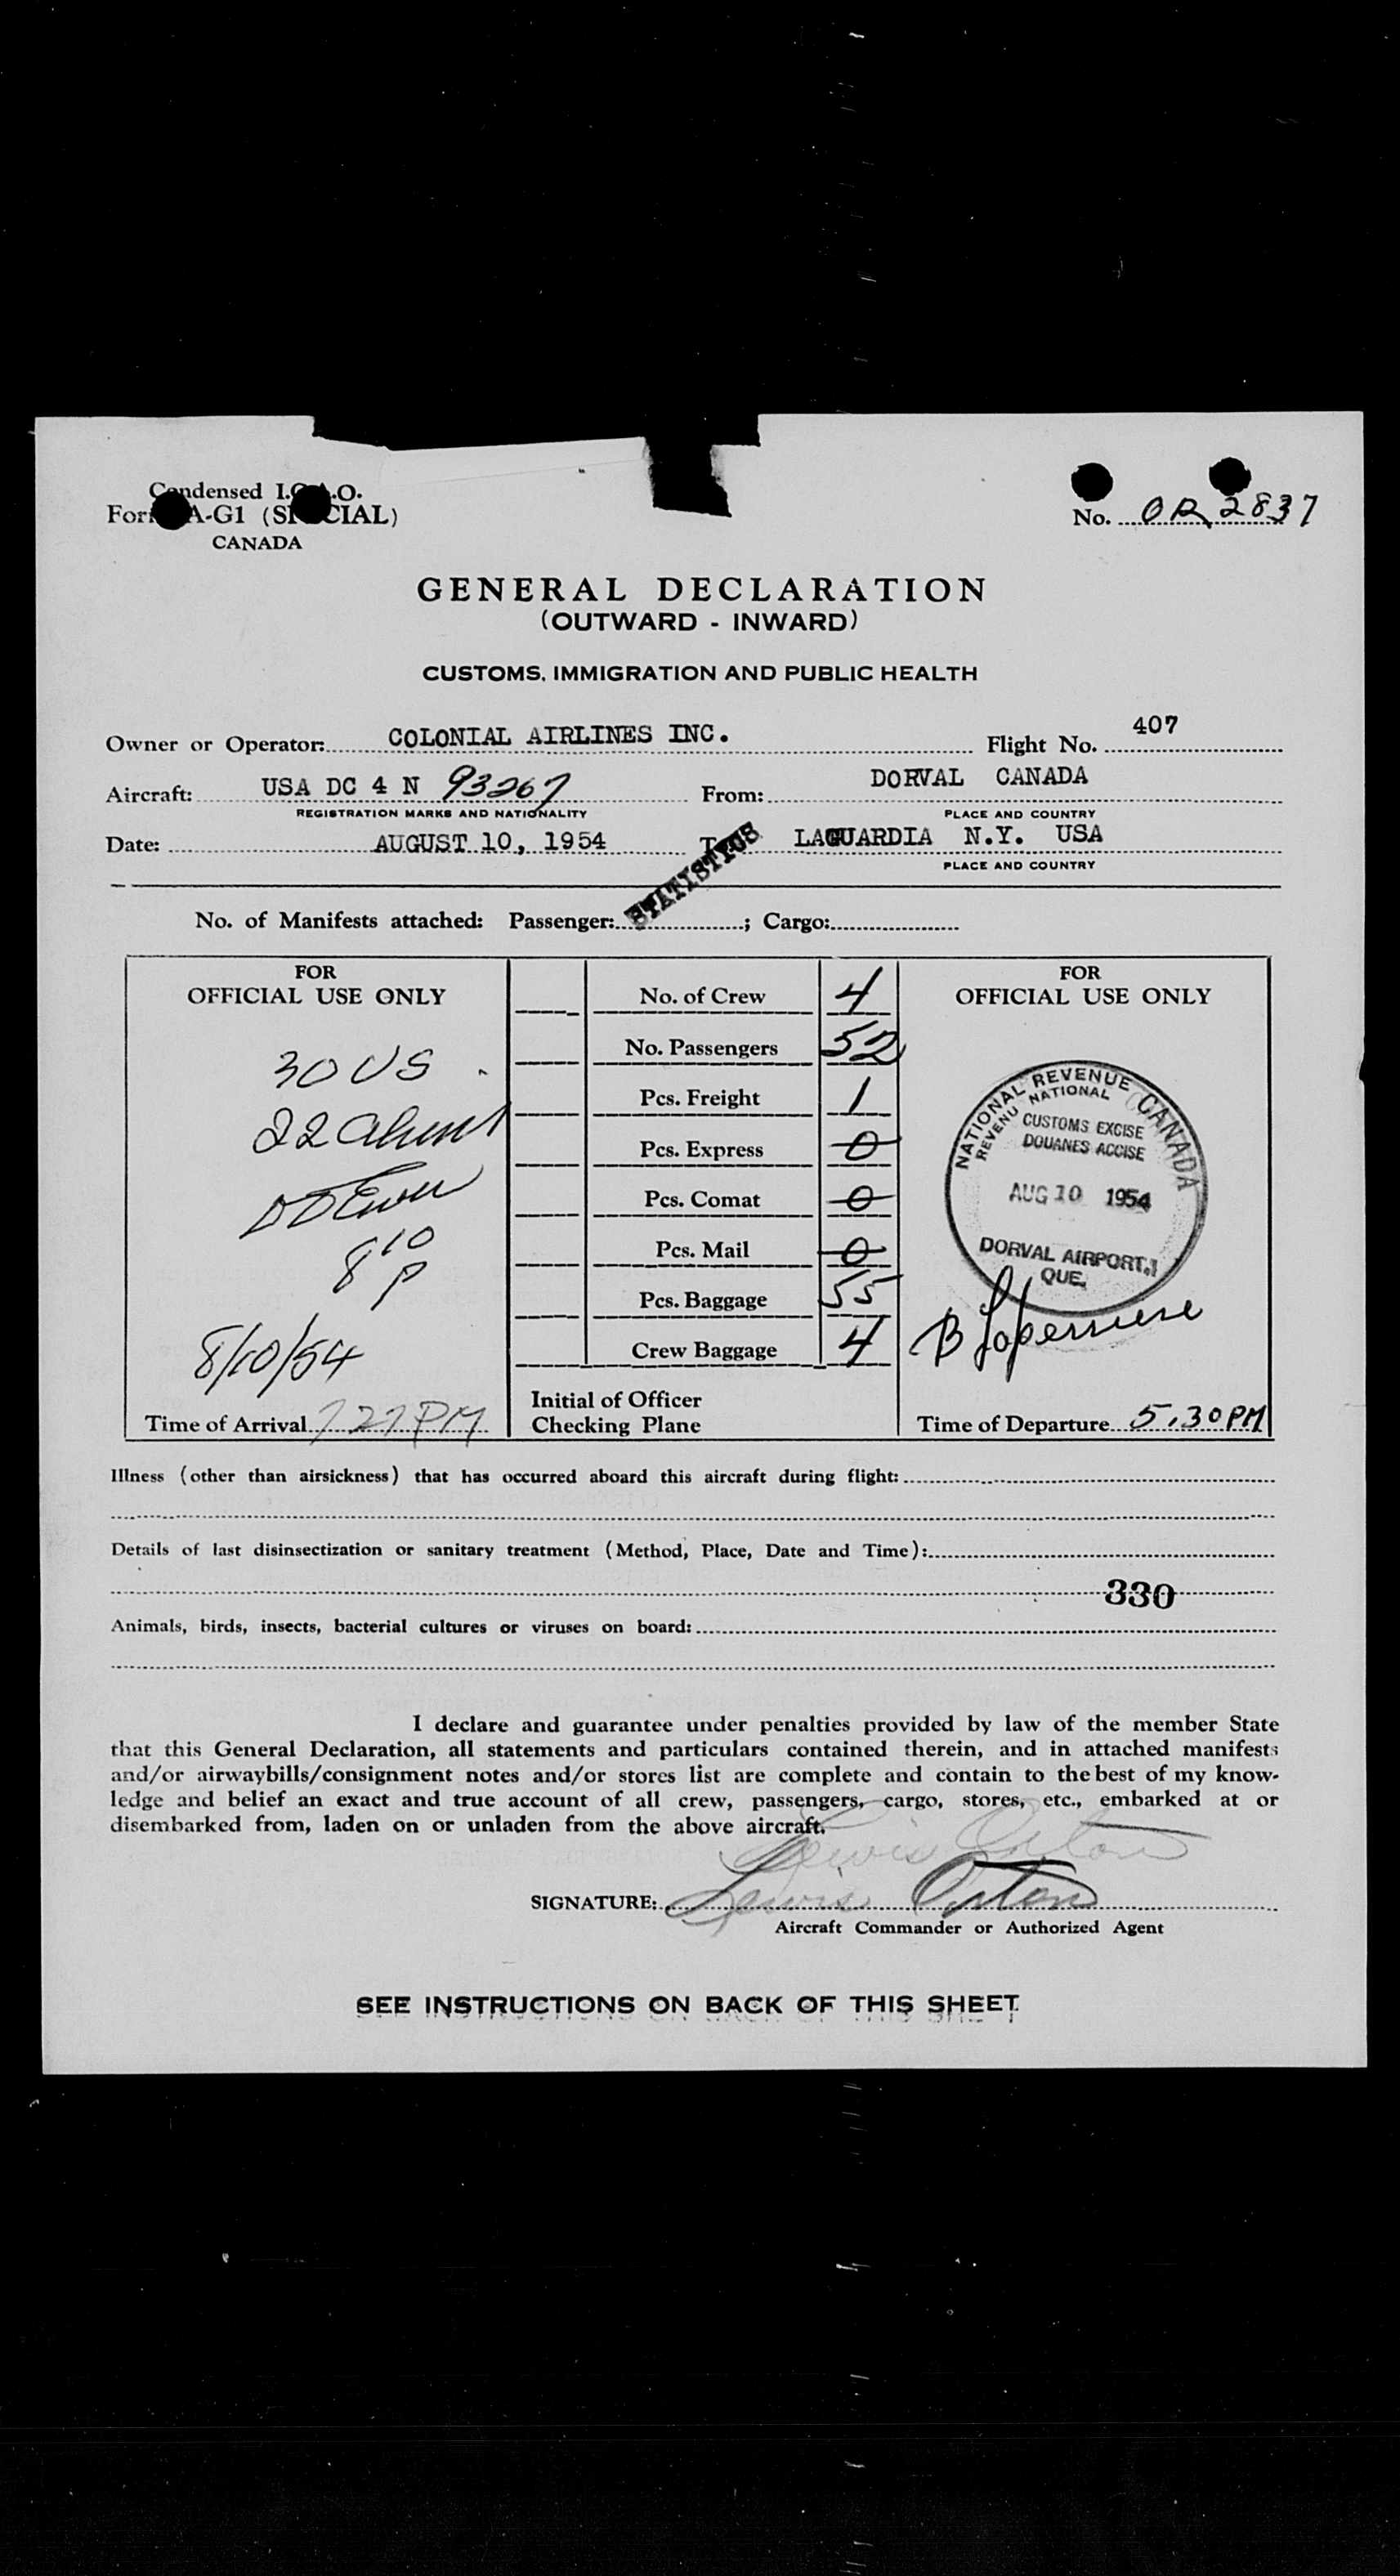 Condensed I.C.A.O.
Form A-G1 (SPECIAL)
CANADA
No. OR 2837
GENERAL DECLARATION
(OUTWARD - INWARD)
CUSTOMS, IMMIGRATION AND PUBLIC HEALTH
Owner or Operator: COLONIAL AIRLINES INC. Flight No. 407
Aircraft: USA DC 4 N 93267 From: DORVAL CANADA
REGISTRATION MARKS AND NATIONALITY PLACE AND COUNTRY
Date: AUGUST 10, 1954 To LAGUARDIA N.Y. USA
PLACE AND COUNTRY
STATISTICS
No. of Manifests attached: Passenger: ; Cargo:
FOR
OFFICIAL USE ONLY
30 US
22 Aliens
8 10 P
8/10/54
Time of Arrival 7 27 PM
No. of Crew 4
No. Passengers 52
Pcs. Freight 1
Pcs. Express 0
Pcs. Comat 0
Pcs. Mail 0
Pcs. Baggage 55
Crew Baggage 4
Initial of Officer
Checking Plane
FOR
OFFICIAL USE ONLY
NATIONAL REVENUE CANADA
REVENU NATIONAL
CUSTOMS EXCISE
DOUANES ACCISE
AUG 10 1954
DORVAL AIRPORT,
QUE.
B
Time of Departure 5.30 PM
Illness (other than airsickness) that has occurred aboard this aircraft during flight:
Details of last disinsectization or sanitary treatment (Method, Place, Date and Time):
330
Animals, birds, insects, bacterial cultures or viruses on board:
I declare and guarantee under penalties provided by law of the member State
that this General Declaration, all statements and particulars contained therein, and in attached manifests
and/or airwaybills/consignment notes and/or stores list are complete and contain to the best of my know-
ledge and belief an exact and true account of all crew, passengers, cargo, stores, etc., embarked at or
disembarked from, laden on or unladen from the above aircraft.
Lewis Orton
SIGNATURE: Lewis Orton
Aircraft Commander or Authorized Agent
SEE INSTRUCTIONS ON BACK OF THIS SHEET